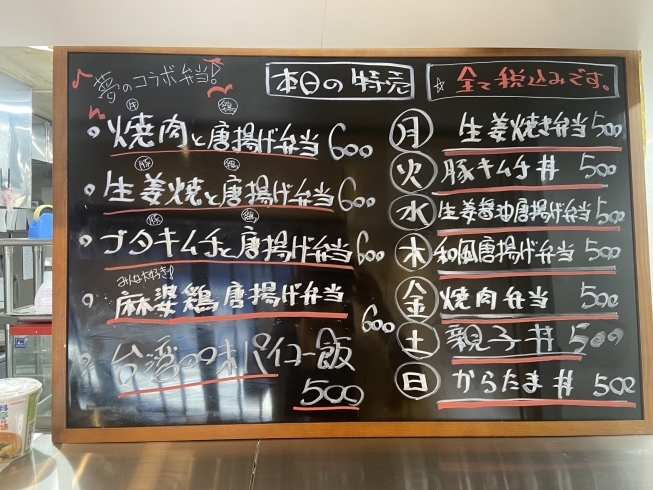 夢のコラボ弁当!
焼肉と唐揚げ弁当 600
豚 鶏
生姜焼と唐揚げ弁当 600
豚 鶏
ブタキムチと唐揚げ弁当 600
みんな大好き!
麻婆鶏唐揚げ弁当 600
台湾の味パイコー飯
500
本日の特売
☆ 全て税込みです。
月 生姜焼き弁当 500
火 豚キムチ丼 500
水 生姜醤油唐揚げ弁当 500
木 和風唐揚げ弁当 500
金 焼肉弁当 500
土 親子丼 500
日 からたま丼 500